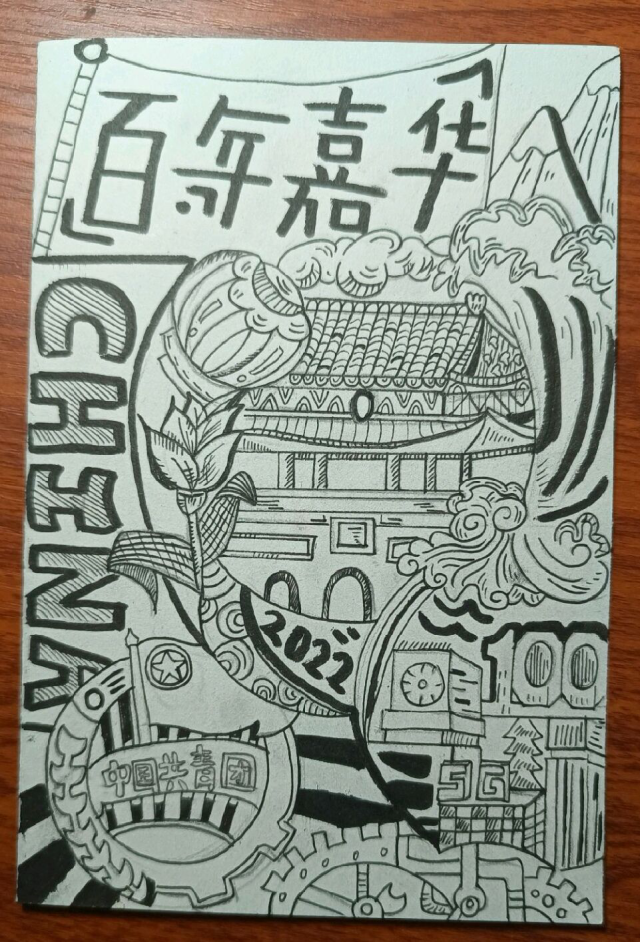 「百年嘉华」
CHINA
2022
100
5G
中国共青团